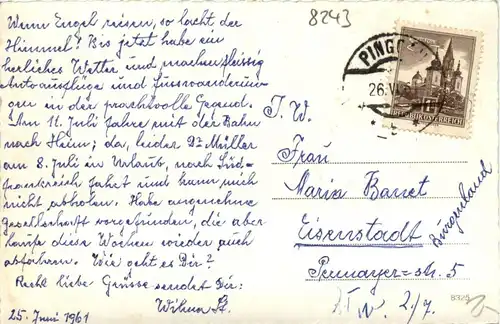 8243
Wenn Engel reisen, so lacht der
Himmel! Bis jetzt habe ein
herliches Wetter und mache fleissig
Autoausflüge und Fusswanderun-
gen in der prachtvolle Gegend.
Am 11. Juli fahre mit der Bahn
nach Heim; da, leider Dr. Müller
am 8. Juli in Urlaub, nach Süd-
frankreich fährt und kann mich
nicht abholen. Habe angenehme
Gesellschaft vorgefunden, die aber
laufe diese Wochen wieder auch
abfahren. Wie geht es Dir?
Recht liebe Grüsse sendet Dir:
Wilma
25. Juni 1961
PING
26.VI.
REPUBLIK ÖSTERREICH
I. W.
Frau
Maria Banet
Eisenstadt
Burgenland
str. 5
2/7.
8325